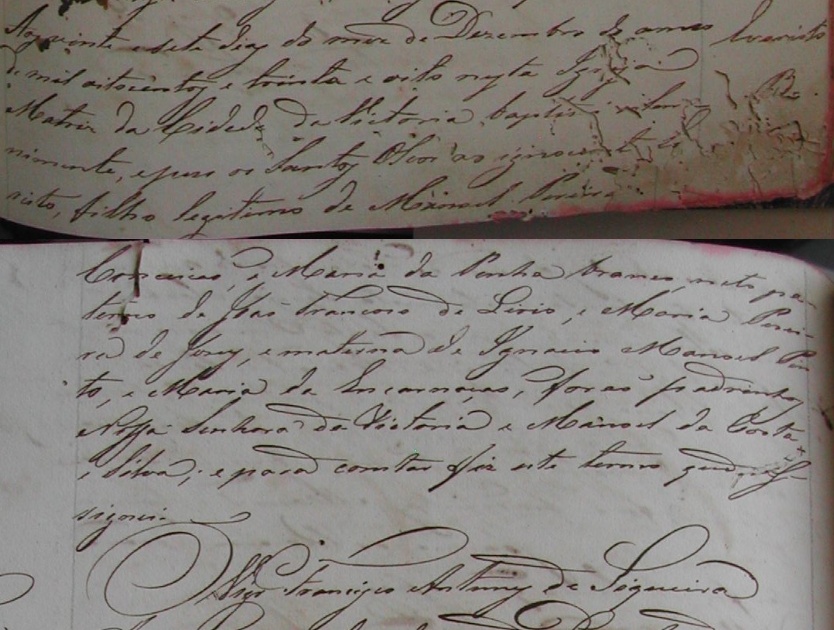 Aos vinte e sete dias do mez de Dezembro do anno Evaristo
de mil oitocentos e trinta e oito nesta Igreja B.
Matriz da Cidade da Victoria baptisei solem-
nimente, e puz os Santos Oleos ao ignocente Eva
risto, filho legitimo de Manoel Pereira
Conceicaõ, e Maria da Penha branco, neto pa-
terno de Joaõ Francisco de Lirio, e Maria Perei-
ra de Jesus, e materna de Ignacio Manoel Pin
to, e Maria da Encarnaçaõ, foraõ padrinhos
Nossa Senhora da Victoria e Manoel da Costa
e Silva; e para constar fiz este termo que
signei.
Vigr.º Francisco Antunes de Siqueira